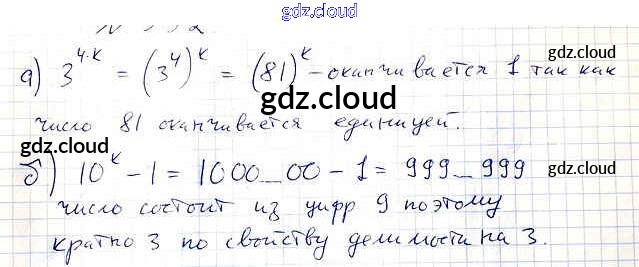 gdz.cloud
а) 3^{4·k} = (3^4)^k = (81)^k - оканчивается 1 так как
gdz.cloud
gdz.cloud
gdz.cloud
число 81 оканчивается единицей.
б) 10^k - 1 = 1000_00 - 1 = 999_999
gdz.cloud
число состоит из цифр 9 поэтому
gdz.cloud
кратно 3 по свойству делимости на 3.
gdz.cloud